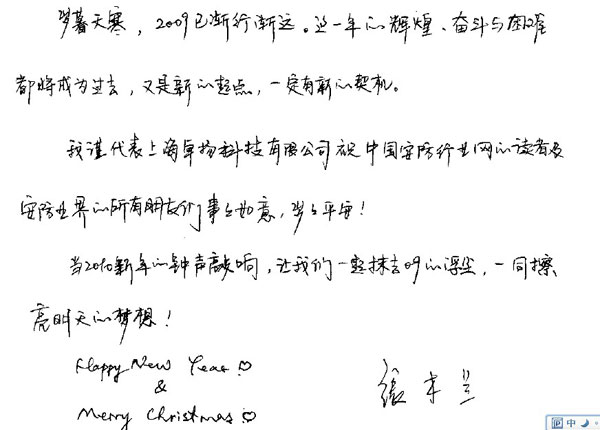 岁暮天寒，2009已渐行渐远。这一年的辉煌、奋斗与
都将成为过去，又是新的起点，一定有新的契机。
我谨代表上海卓扬科技有限公司祝中国安防行业网的读者及
安防业界的所有朋友们事事如意，岁岁平安！
当2010新年的钟声敲响，让我们一起抹去09的浮尘，一同擦
亮明天的梦想！
Happy New Year！♡
&
Merry Christmas♡
张 兰
中